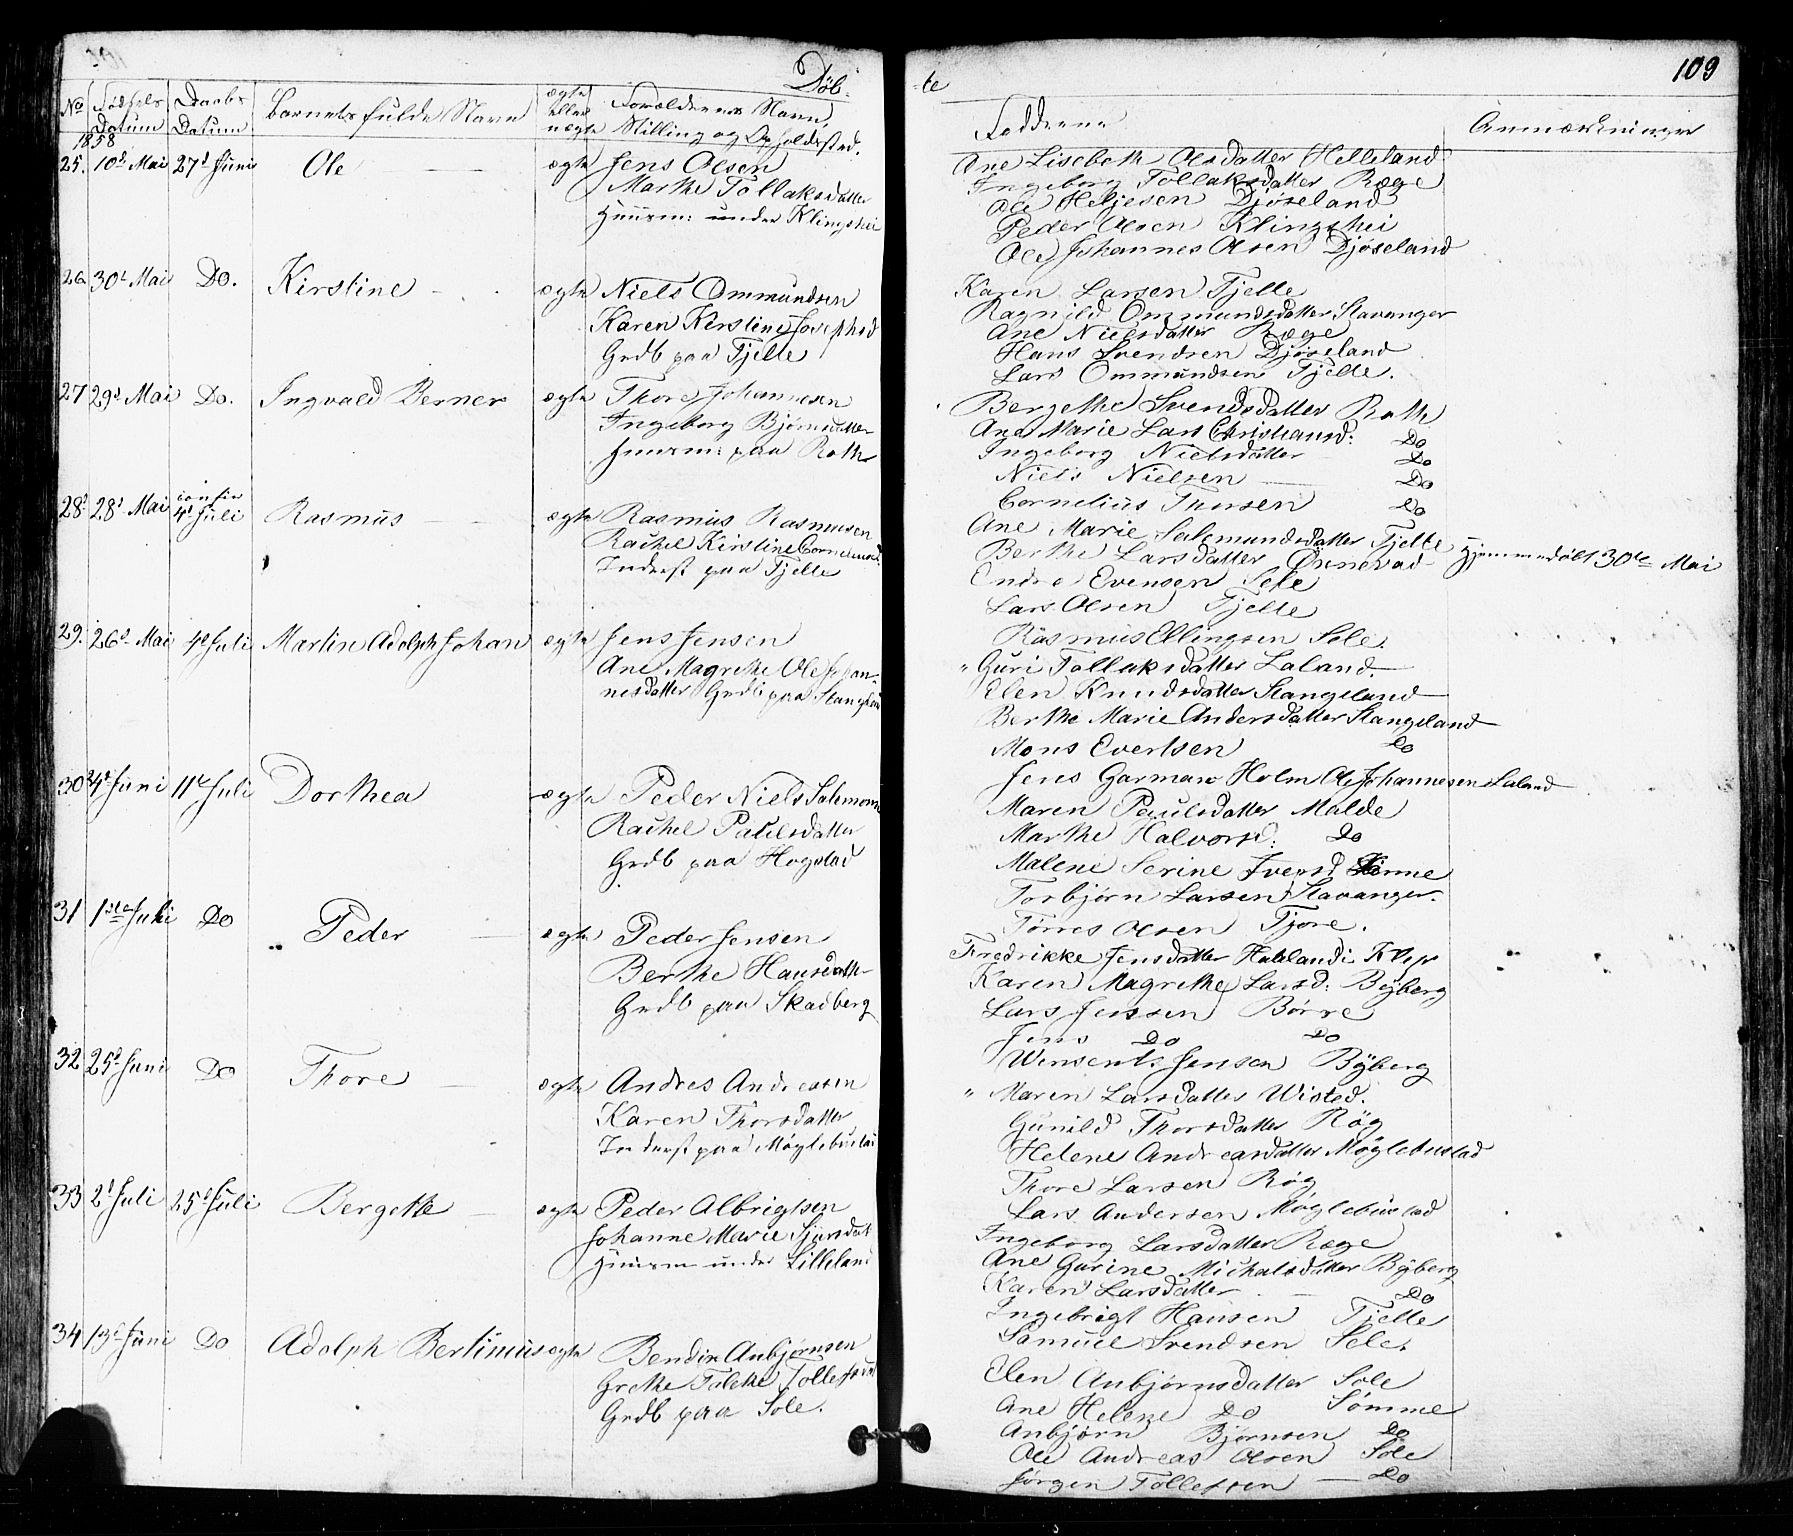 Døb-
No Fødsels Datum Daabs Datum Barnets fulde Navn ægte eller uægte Forældrenes Navn, Stilling og Opholdssted.
1858
25. 10d Mai 27d Juni Ole ægte Jens Olsen
Marthe Tollaksdatter
Huusm: under Klingshei
26 30d Mai Do. Kirstine ægte Niels Ommundsen
Karen Kirstine Josephsd
Grdb paa Tjelte
27 29d Mai Do. Ingvald Berner ægte Thore Johannesen
Ingeborg Bjørnsdatter
Huusm: paa Roth
28d 28d Mai confir 4d Juli Rasmus ægte Rasmus Rasmusen
Rachel Kirstine Corneliusd.
Inderst paa Tjelte
29. 26d Mai 4d Juli Martin Adolph Johan ægte Jens Jensen
Ane Magrethe Ole Johan-
nesdatter Grdb paa Stangeland
30 24d Juni 11d Juli Dorthea ægte Peder Niels Salemons
Rachel Paulsdatter
Grdb paa Hogstad
31 1ste Juli Do Peder ægte Peder Jensen
Berthe Hansdatt
Grdb paa Skadberg
32 25d Juni Do Thore ægte Andres Andreasen
Karen Thorsdatter
Inderst paa Møglebustad
33 2d Juli 25d Juli Bergethe ægte Peder Albrigtsen
Johanne Marie Sjursdat
Huusm under Lilleland
34 13d Juni Do Adolph Bertinius ægte Bendix Anbjørnsen
Grethe Talche Tollefsdat
Grdb paa Sole.
-te
109
Fadderne Anmærkninger
Ane Lisebeth Olsdatter Helleland
Ingeborg Tollaksdatter Ræge
Ole Heljesen Djøseland
Peder Olsen Klingshei
Ole Johannes Olsen Djøseland
Karen Larsen Tjelte
Ragnild Ommundsdatter Stavanger
Ane Nielsdatter Ræge
Hans Svendsen Djøseland
Lars Ommundsen Tjelte.
Bergethe Svendsdatter Roth
Ane Marie Lars Christiansd: Do
Ingeborg Nielsdatter Do
Niels Nielsen Do
Cornelius Thorsen Do
Ane Marie Salemundsdatter Tjelte Hjemmedøbt 30te Mai
Berthe Larsdatter Ønnerad
Endre Evensen Sele
Lars Olsen Tjelte
Rasmus Ellingsen Sole.
" Guri Tollaksdatter Laland.
Elen Knudsdatter Stangeland
Berthe Marie Andersdatter Stangeland
Mons Evertsen Do
Jens Garman Holm Ole Johannesen Laland
Maren Paulsdatter Malde
Marthe Halvorsd: Do
Malene Serine Iversd Kinne
Torbjørn Larsen Stavanger.
Tørres Olsen Tjore.
Fredrikke Jensdatter Habland i Klep
Karen Magrethe Larsd: Byberg
Lars Jensen Børre
Jens Do Do
Winsents Jensen Byberg
" Maren Larsdatter Wisted.
Gunild Thorsdatter Røg
Helene Andreasdatter Møglebustad
Thore Larsen Røg
Lars Andersen Møglebustad
Ingeborg Larsdatter Ræge
Ane Gurine Michalsdatter Byberg
Karen Larsdatter Do
Ingebrigt Hansen Tjelte
Samuel Svendsen Sele.
Elen Anbjørnsdatter Sole
Ane Helene Do Sømme
Anbjørn Bjørnsen Do
Ole Andreas Olsen Sole
Jørgen Tollefsen Do